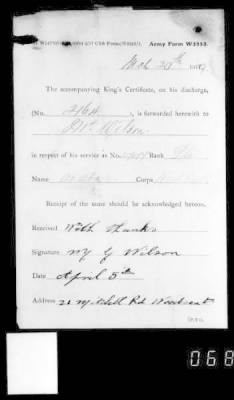 Army Form W5333.
Mch 20th 1919
The accompanying King's Certificate, on his discharge,
(No. 2164), is forwarded herewith to
Mr Wilson
in respect of his service as No. Rank Pte
Name Corps
Receipt of the same should be acknowledged hereon.
Received With Thanks
Signature W G Wilson
Date April 5th
Address 21 Mitchell Rd
068